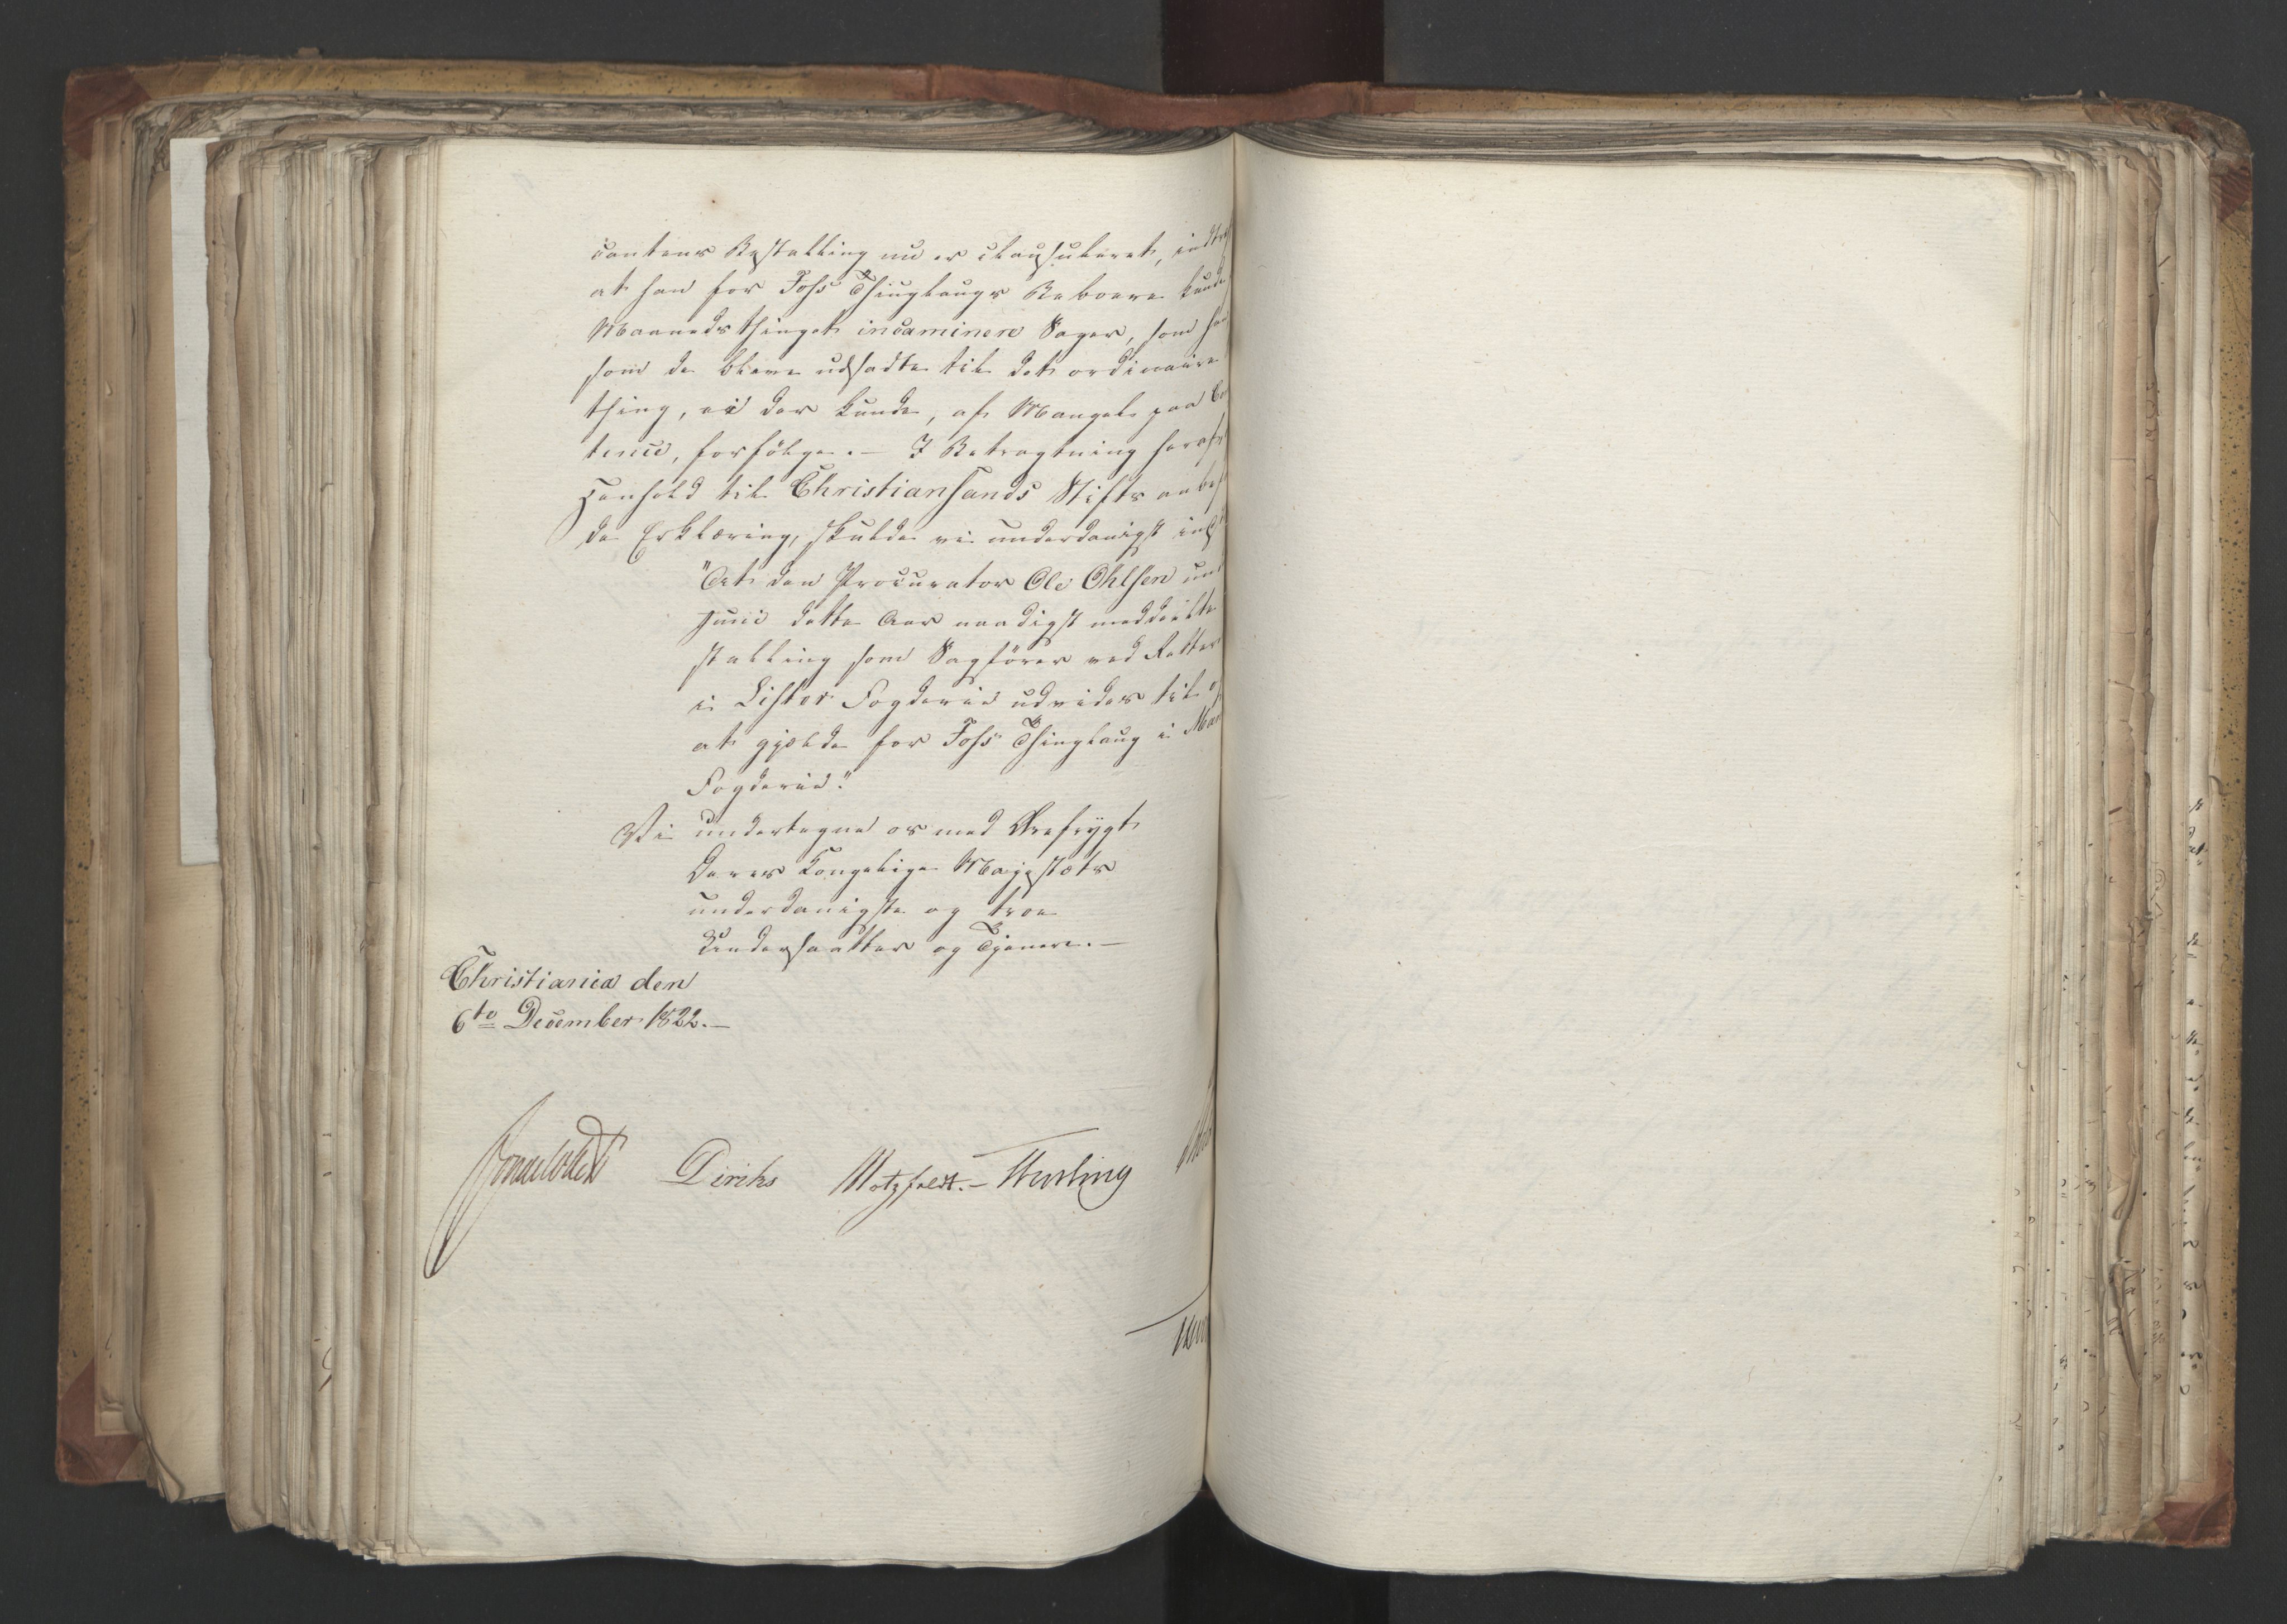 cantens Bestalling nu er clausuleret, indtraf
at han for Foss Thinglaugs Beboere kunde
Maanedsthinget incaminere Sager, som han
som de bleve udsadte til det ordinaire
thing, ei der kunde, af Mangel paa Co
tence, forfølge. – I Betragtning heraf
Henhold til Christiansands Stifts anbef
de Erklæring, skulde vi underdanigst ind
"At den Procurator Ole Ohlsen un
Junii dette Aar naadigst meddeelte
stalling som Sagfører ved Retter
i Lister Fogderie udvides til o
at gjælde for Foss Thinglaug i Man
Fogderie".
Vi undertegne os med Ærefrygt
Deres Kongelige Majestæts
underdanigste og troe
Undersaatter og Tjenere. –
Christiania den
6to December 1822. –
Sommerhielm Diriks Motzfeldt. – Thesling